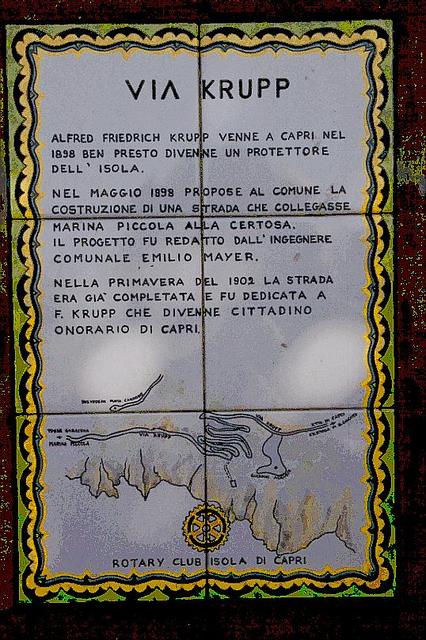 VIA KRUPP
ALFRED FRIEDRICH KRUPP VENNE A CAPRI NEL
1898 BEN PRESTO DIVENNE UN PROTETTORE
DELL' ISOLA.
NEL MAGGIO 1898 PROPOSE AL COMUNE LA
COSTRUZIONE DI UNA STRADA CHE COLLEGASSE
MARINA PICCOLA ALLA CERTOSA.
IL PROGETTO FU REDATTO DALL' INGEGNERE
COMUNALE EMILIO MAYER.
NELLA PRIMAVERA DEL 1902 LA STRADA
ERA GIA' COMPLETATA E FU DEDICATA A
F. KRUPP CHE DIVENNE CITTADINO
ONORARIO DI CAPRI.
BELVEDERE PUNTA CANNONE
VIA KRUPP
MARINA PICCOLA
VIA KRUPP
ROTARY CLUB ISOLA DI CAPRI